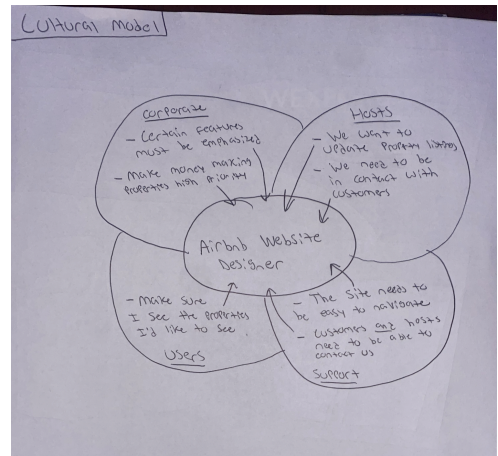 Cultural Model
Corporate
- Certain features
must be emphasized
- Make money making
properties high priority
Hosts
- We want to
update property listings
- We need to be
in contact with
customers
Airbnb Website
Designer
- Make sure
I see the properties
I'd like to see.
Users
- The site needs to
be easy to navigate
- Customers and hosts
need to be able to
contact us
Support